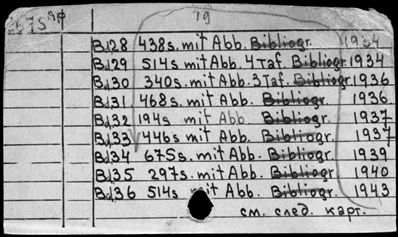 19
Bd28 438s. mit Abb. Bibliogr. 1934
Bd29 514s mit Abb. 4 Taf. Bibliogr. 1934
Bd30 340s. mit Abb. 3 Taf. Bibliogr 1936
Bd31 468s. mit Abb. Bibliogr. 1936.
Bd32 194s mit Abb. Bibliogr. 1937
Bd33 446s mit Abb. Bibliogr. 1937
Bd34 675s. mit Abb. Bibliogr. 1939
Bd35 297s. mit Abb. Bibliogr. 1940
Bd36 514s mit Abb. Bibliogr. 1943
см. след. карт.